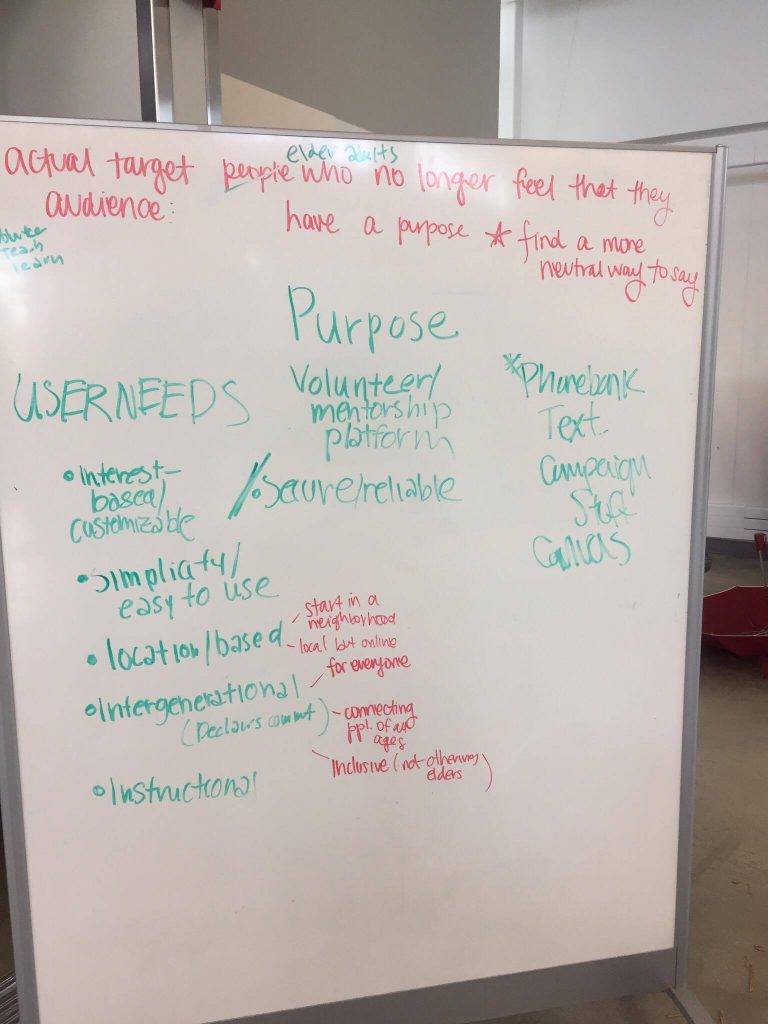 elder adults
actual target people who no longer feel that they
audience: have a purpose ★ find a more
neutral way to say
Teach
learn
Purpose
USER NEEDS
Volunteer/
mentorship
platform
• interest-
based/
customizable
• secure/reliable
• simplicity/
easy to use
• location/based
start in a
neighborhood
- local but online
• Intergenerational
for everyone
- connecting
ppl. of all
ages
Inclusive (not othering
elders)
• Instructional
*Phonebank
Text
Campaign
Stuff
Canvas